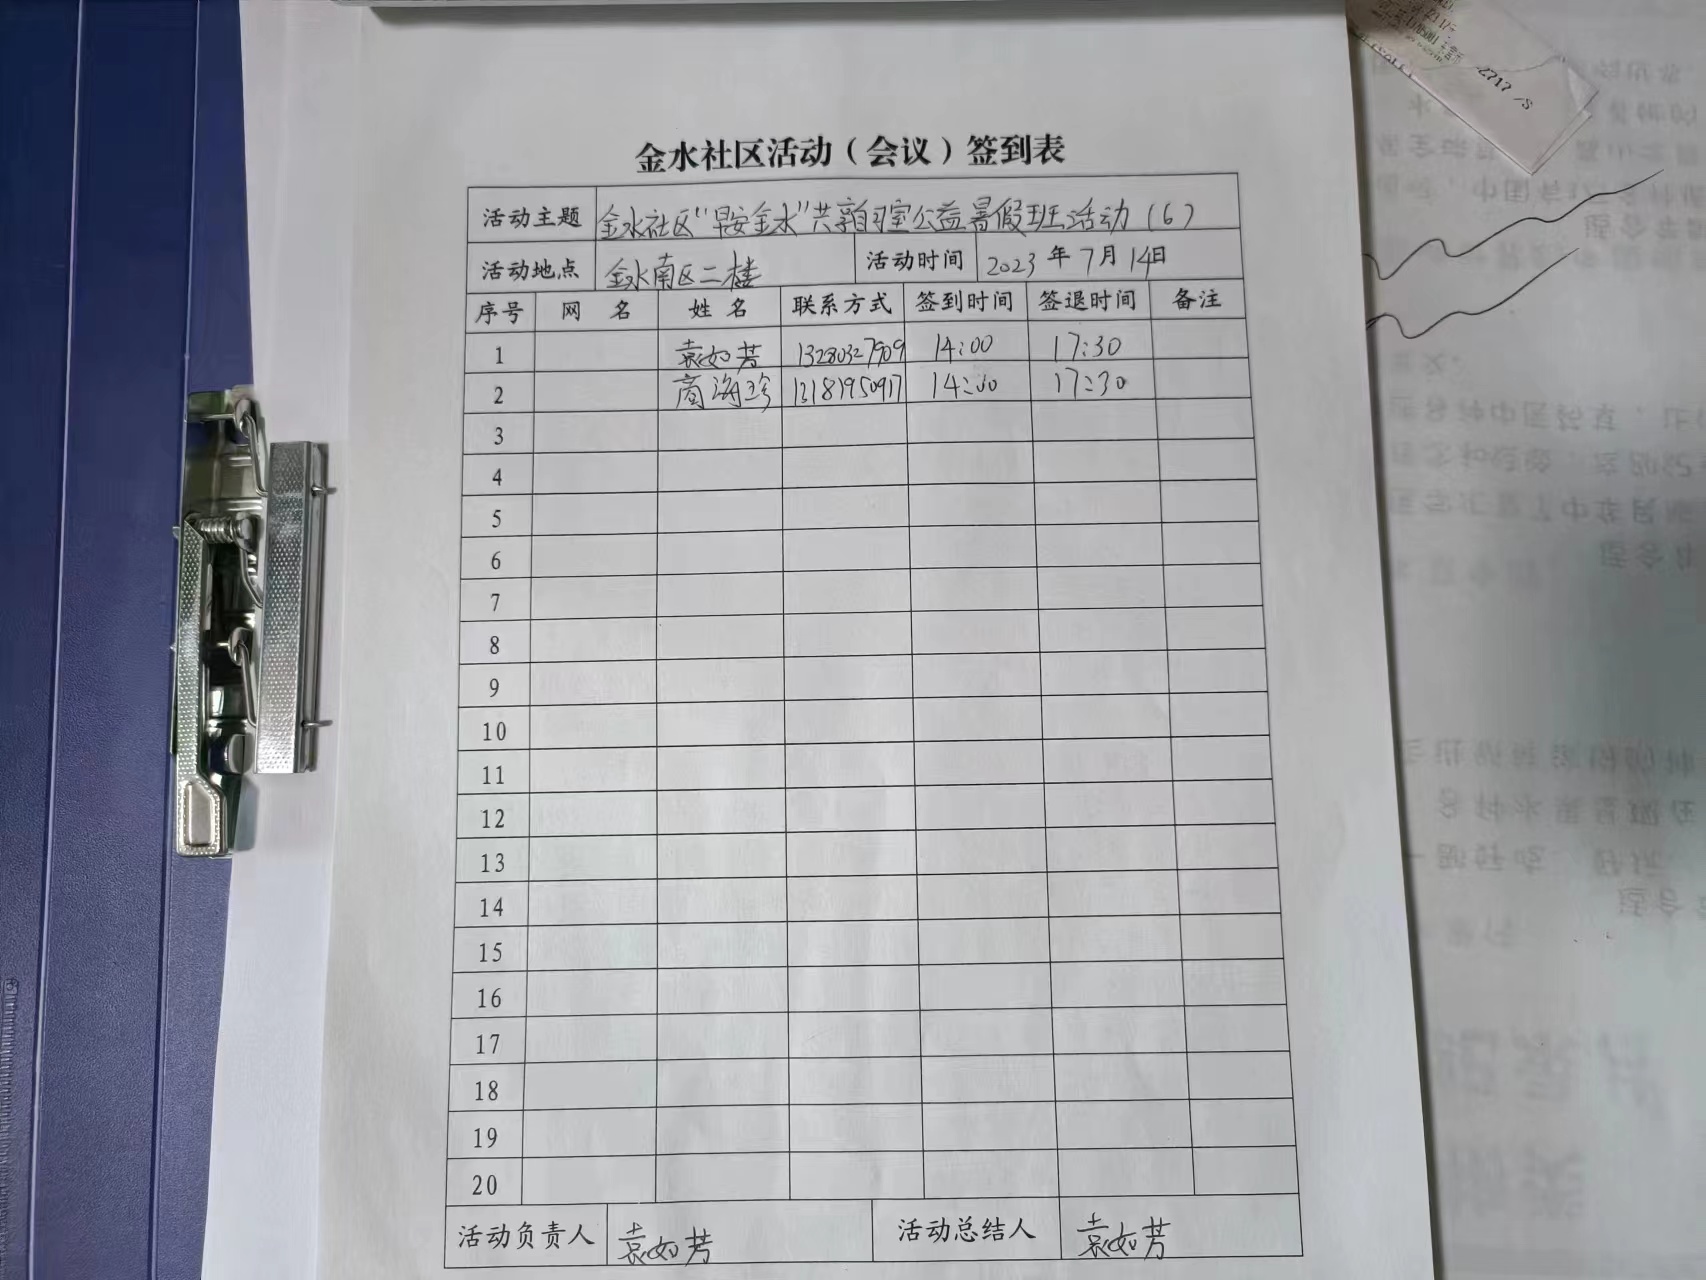 金水社区活动（会议）签到表
活动主题 金水社区“早安金水”共享自习室公益暑假班活动（6）
活动地点 金水南区二楼 活动时间 2023年7月14日
序号 网 名 姓 名 联系方式 签到时间 签退时间 备注
1 袁如芳 13280327909 14:00 17:30
2 商海珍 13181950917 14:00 17:30
3
4
5
6
7
8
9
10
11
12
13
14
15
16
17
18
19
20
活动负责人 袁如芳 活动总结人 袁如芳